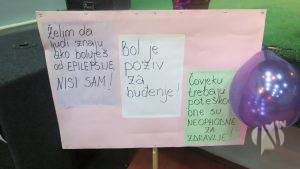 Želim da
ljudi znaju
ako boluješ
od EPILEPSIJE
NISI SAM!
Bol je
poziv
za
buđenje!
Čovjeku
trebaju
poteškoće
one su
NEOPHODNE
ZA
ZDRAVLJE!